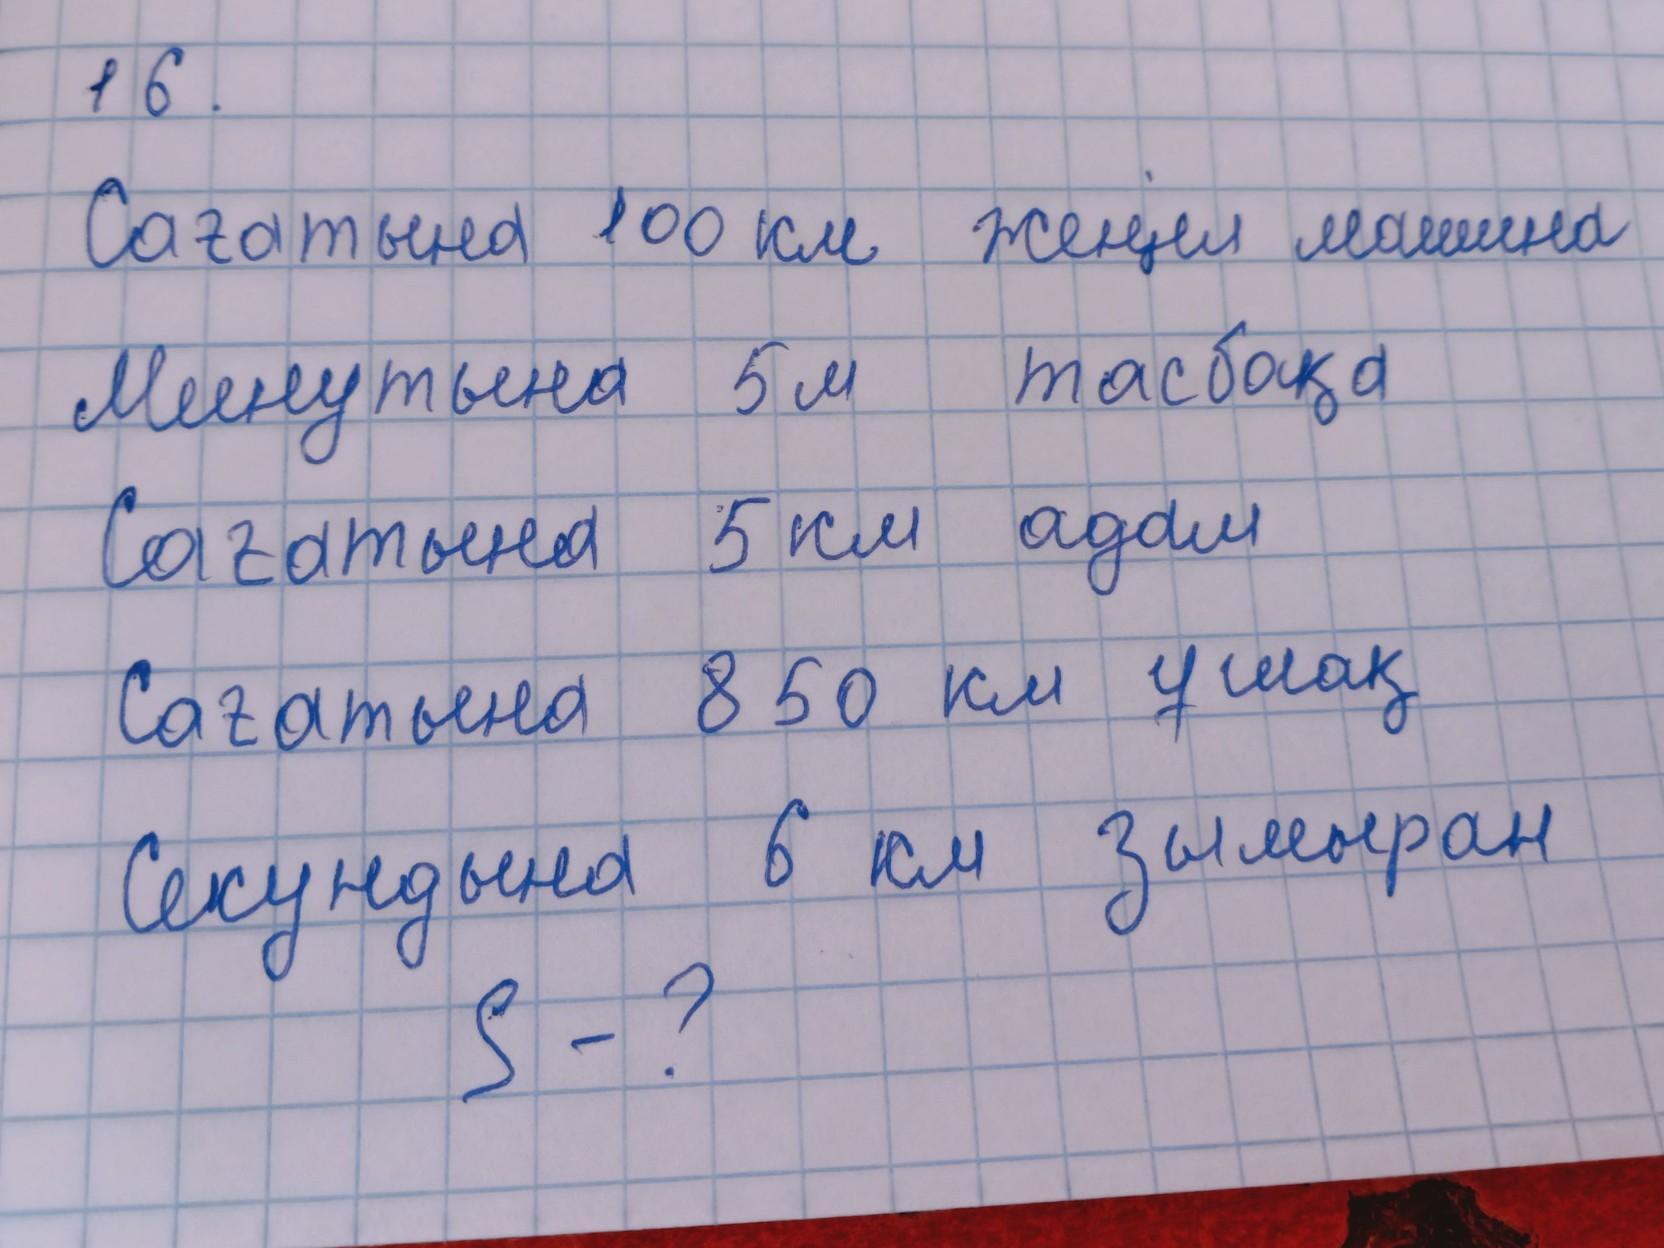 16.
Сағатына 100 км жеңіл машина
Минутына 5 м тасбақа
Сағатына 5 км адам
Сағатына 850 км ұшақ
Секундына 6 км зымыран
S - ?